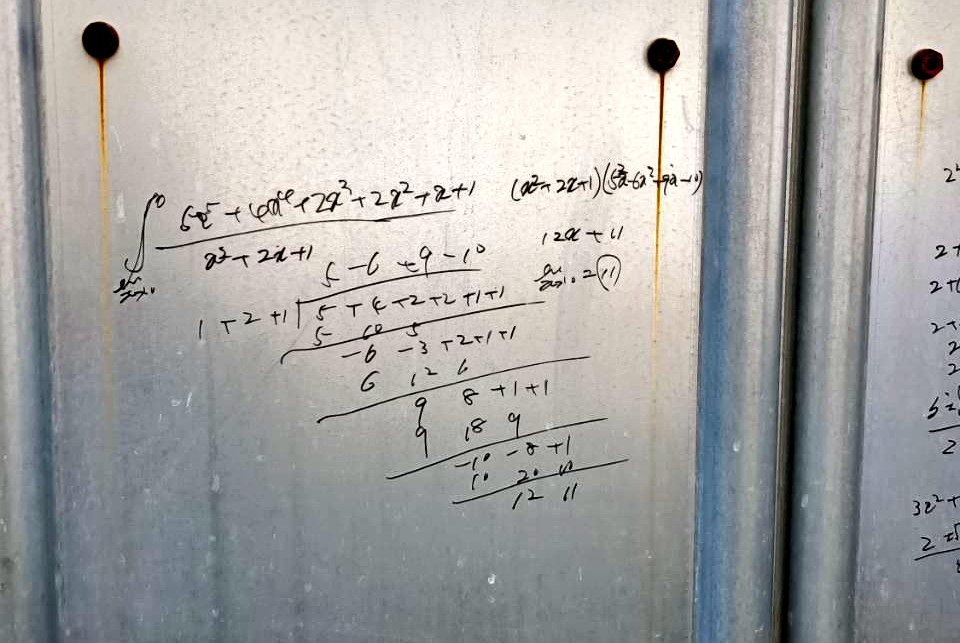 5x⁵ + 4x⁴ + 2x³ + 2x² + x + 1
x² + 2x + 1
(x² + 2x + 1)(5x³ - 6x² + 9x - 10)
12x + 11
= 11
5 - 6 + 9 - 10
1 + 2 + 1 5 + 4 + 2 + 2 + 1 + 1
5 10 5
-6 -3 +2 +1 +1
6 12 6
9 8 +1 +1
9 18 9
-10 -8 +1
10 20 10
12 11
2+
2+
2+
2
2
2
3x² +
2